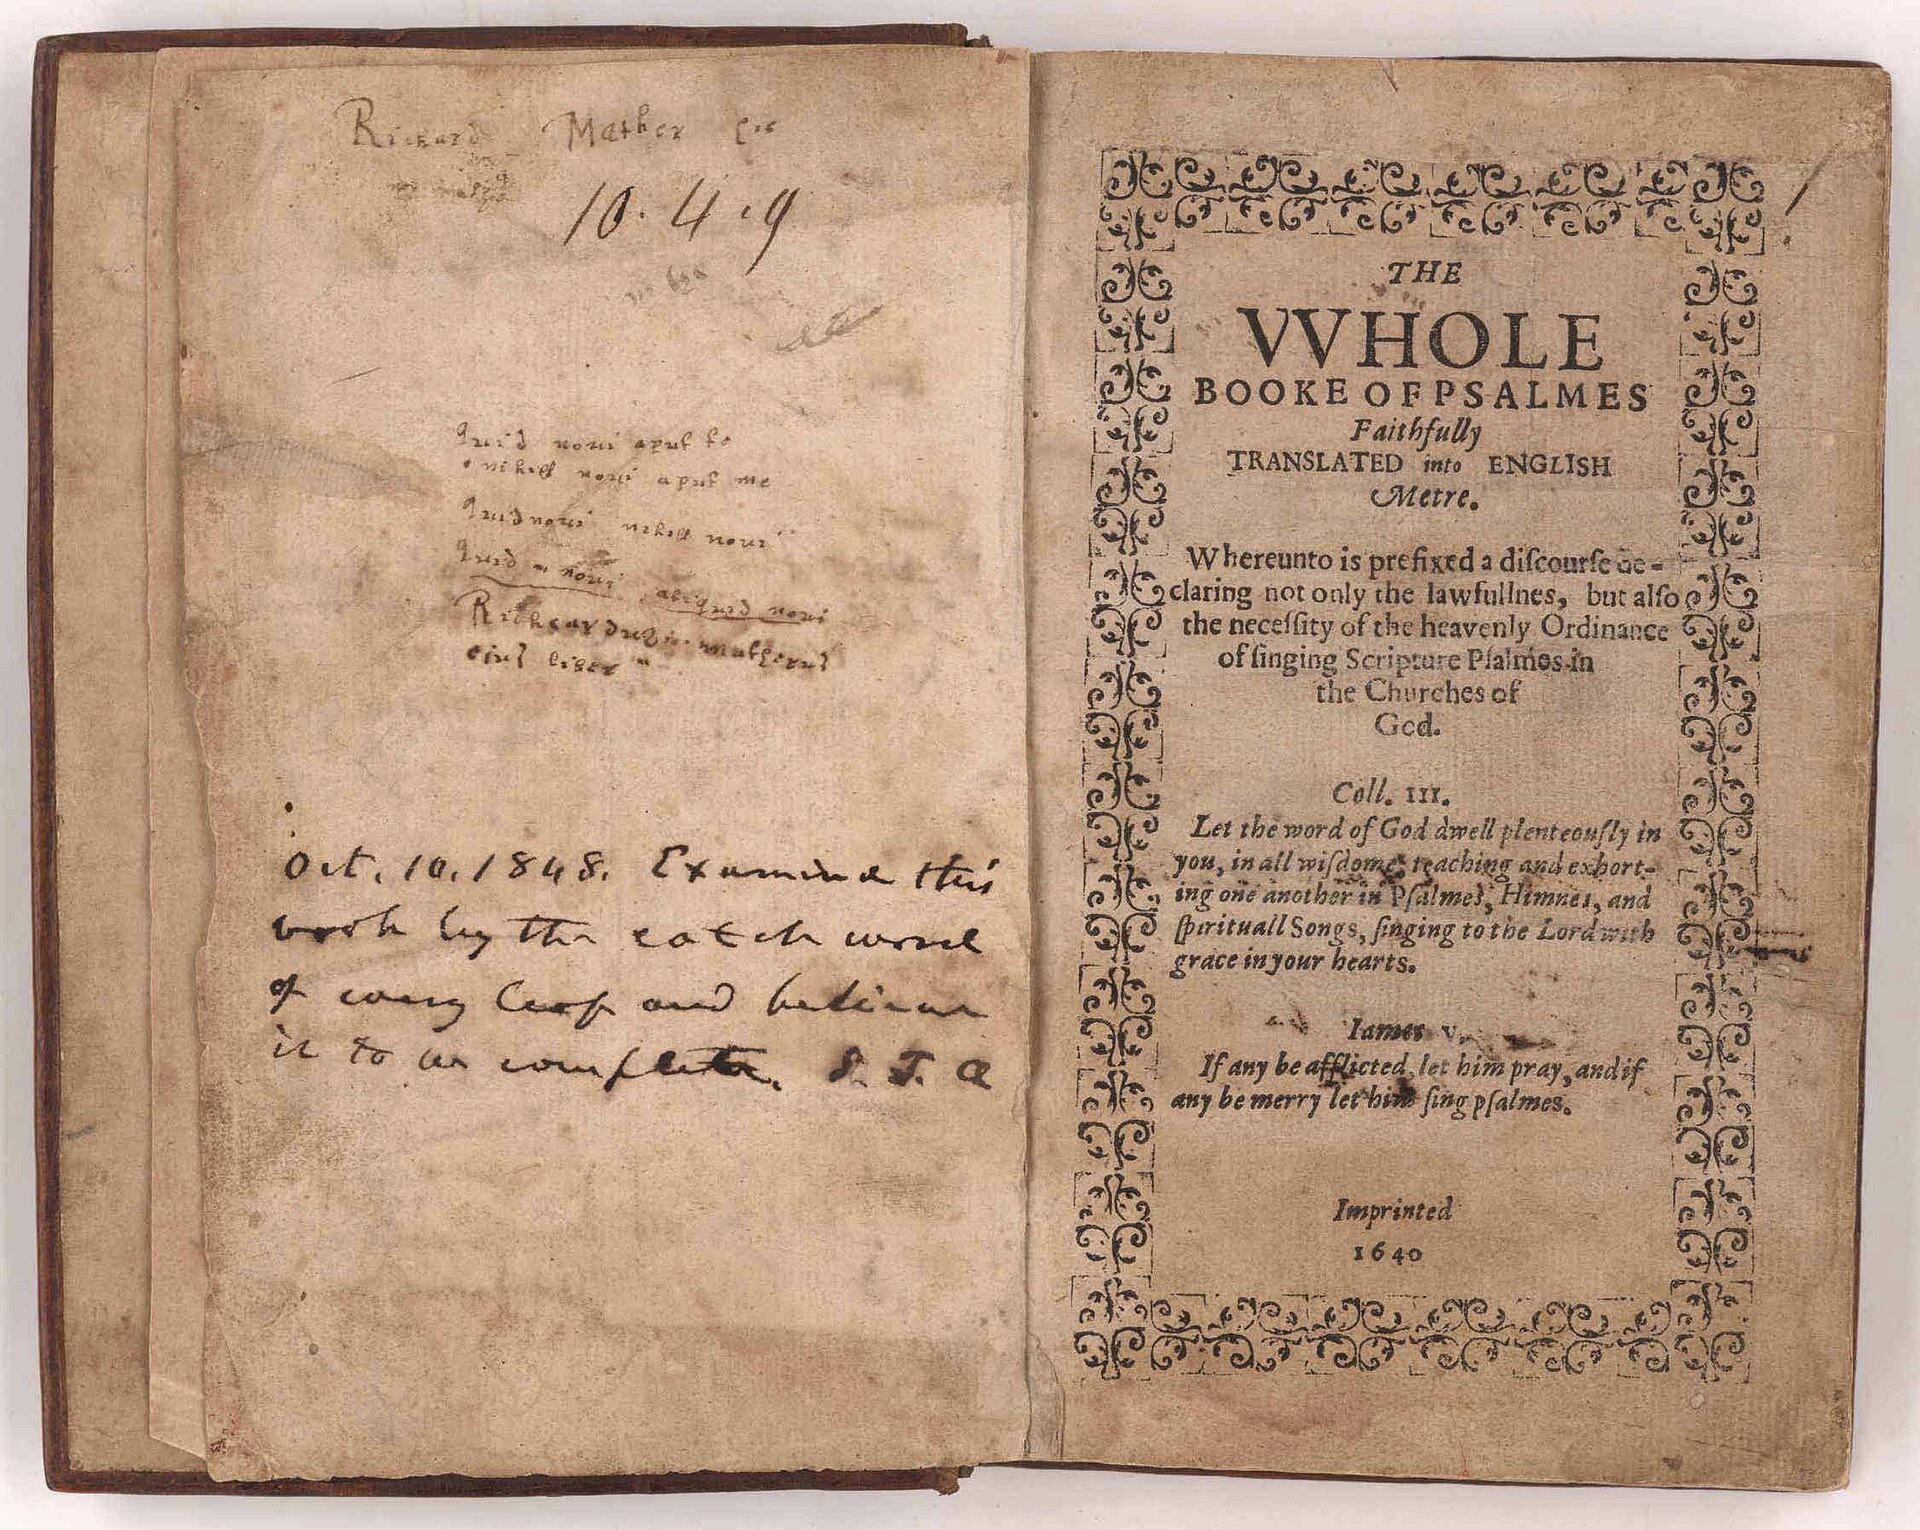 Richard Mather
10.4.9
Quid novi aput te
nihill novi aput me
Quid novi nihill novi
Quid novi aliquid novi
Richardus matherus
eius liber
Oct. 10. 1848. Examined this
work by the catch word
of every leaf and believe
it to be complete. S. J. A
THE
VVHOLE
BOOKE OF PSALMES
Faithfully
TRANSLATED into ENGLISH
Metre.
Whereunto is prefixed a diſcourſe de-
claring not only the lawfullnes, but alſo
the neceſſity of the heavenly Ordinance
of ſinging Scripture Pſalmes in
the Churches of
God.
Coll. III.
Let the word of God dwell plenteouſly in
you, in all wiſdome, teaching and exhort-
ing one another in Pſalmes, Himnes, and
ſpirituall Songs, ſinging to the Lord with
grace in your hearts.
Iames v.
If any be afflicted, let him pray, and if
any be merry let him ſing pſalmes.
Imprinted
1640